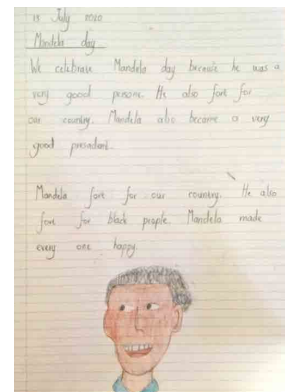 18 July 2020
Mandela day
We celebrate Mandela day because he was a
very good persone. He also fort for
our country. Mandela also become a very
good president.
Mandela fort for our country. He also
fort for black people. Mandela made
every one happy.